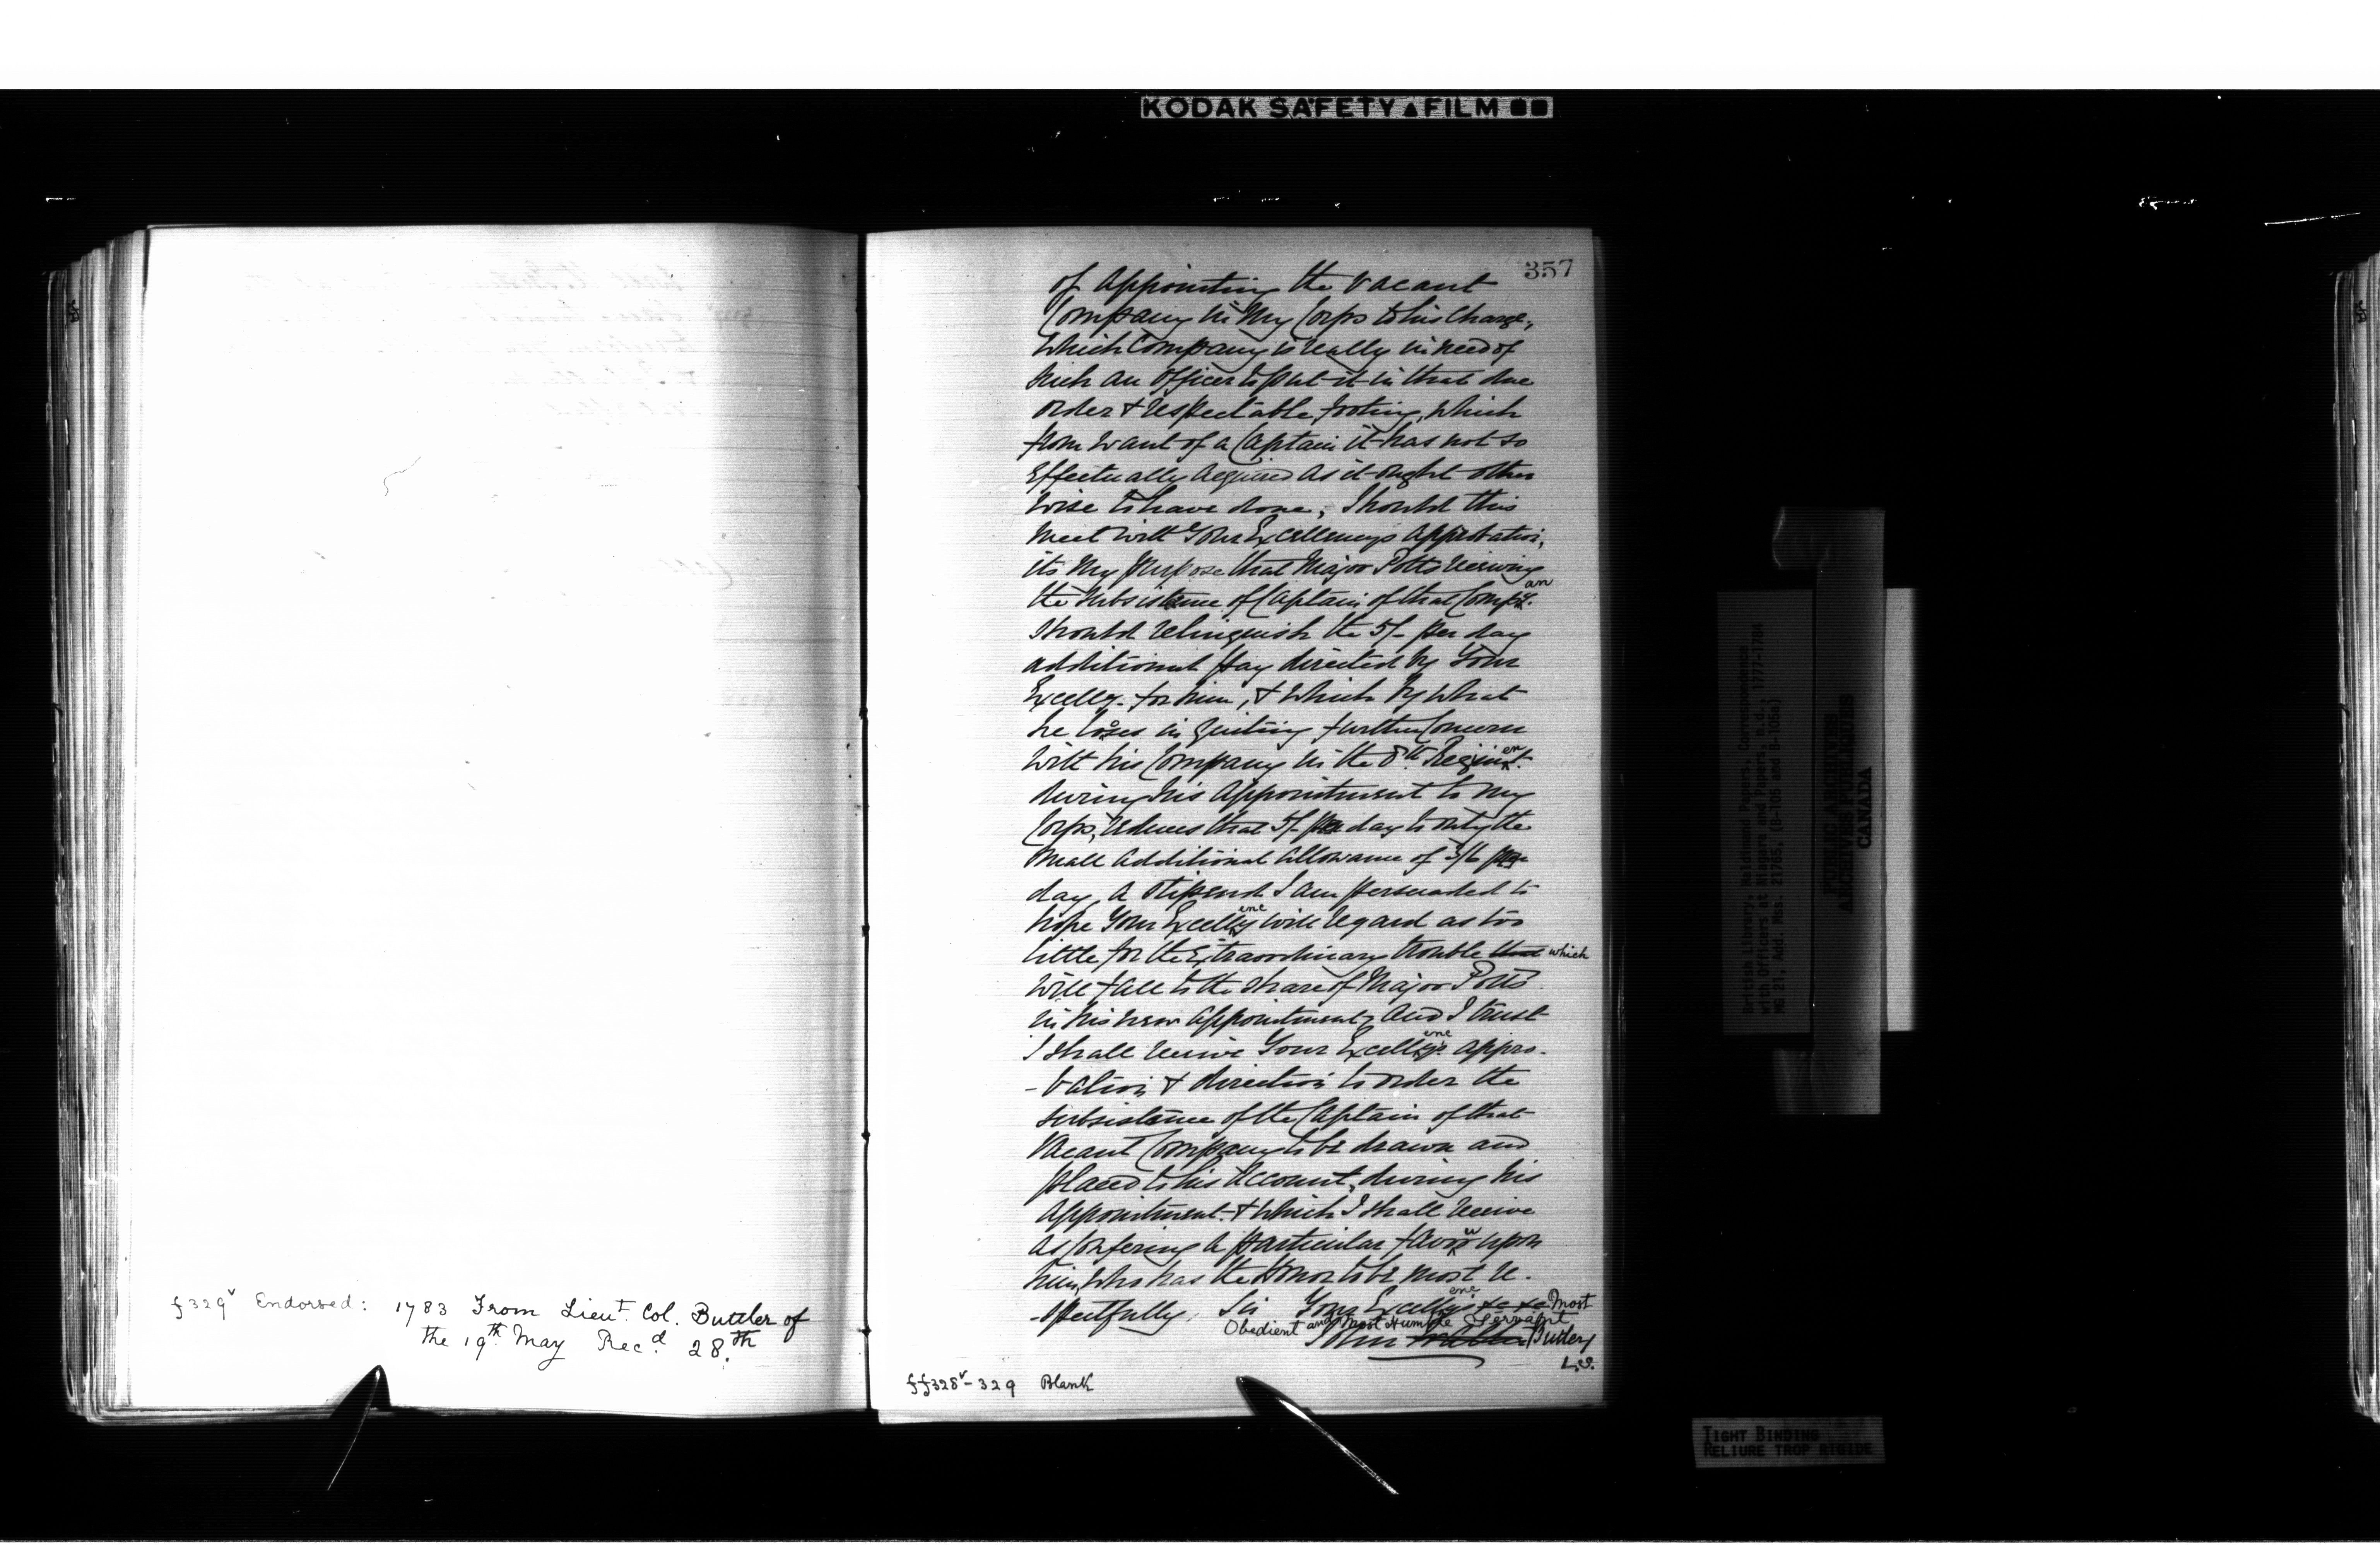 KODAK SAFETY FILM
f329v Endorsed: 1783 From Lieut. Col. Buttler of
the 19th May Recd. 28th
357
of Appointing the Vacant
Company in My Corps to his Charge,
which Company is really in need of
such an Officer to put it in that due
order & respectable footing, which
from want of a Captain it has not so
Effectually acquired as it ought other
wise to have done, Should this
meet with Your Excellencys Approbation,
its My purpose that Major Potts receiving
the subsistence of Captain of that Compány.
should relinquish the 5/- per day
additional pay directed by Your
Excelly. for him, & which by what
he loses in quiting further Concern
with his Company in the 8th Regiment.
during his Appointment to my
Corps, reduces that 5/- per day to only the
small additional allowance of 3/6 per
day, a stipend I am persuaded to
hope Your Excellency will regard as too
little for the Extraordinary trouble that which
will fall to the share of Major Potts
in his new appointment, and I trust
I shall receive Your Excellency's appro-
-bation & direction to order the
subsistence of the Captain of that
Vacant Company to be drawn and
placed to his Account, during his
Appointment. & which I shall receive
as Confering a particular favour upon
him, who has the Honor to be most re-
-spectfully, Sir Your Excellency's Most
Obedient and Most Humble Servant
John Butler
ff328v-329 Blank
British Library, Haldimand Papers, Correspondence
with Officers at Niagara and Papers, n.d., 1777-1784
MG 21, Add. Mss. 21765, (B-105 and B-105a)
PUBLIC ARCHIVES
ARCHIVES PUBLIQUES
CANADA
TIGHT BINDING
RELIURE TROP RIGIDE